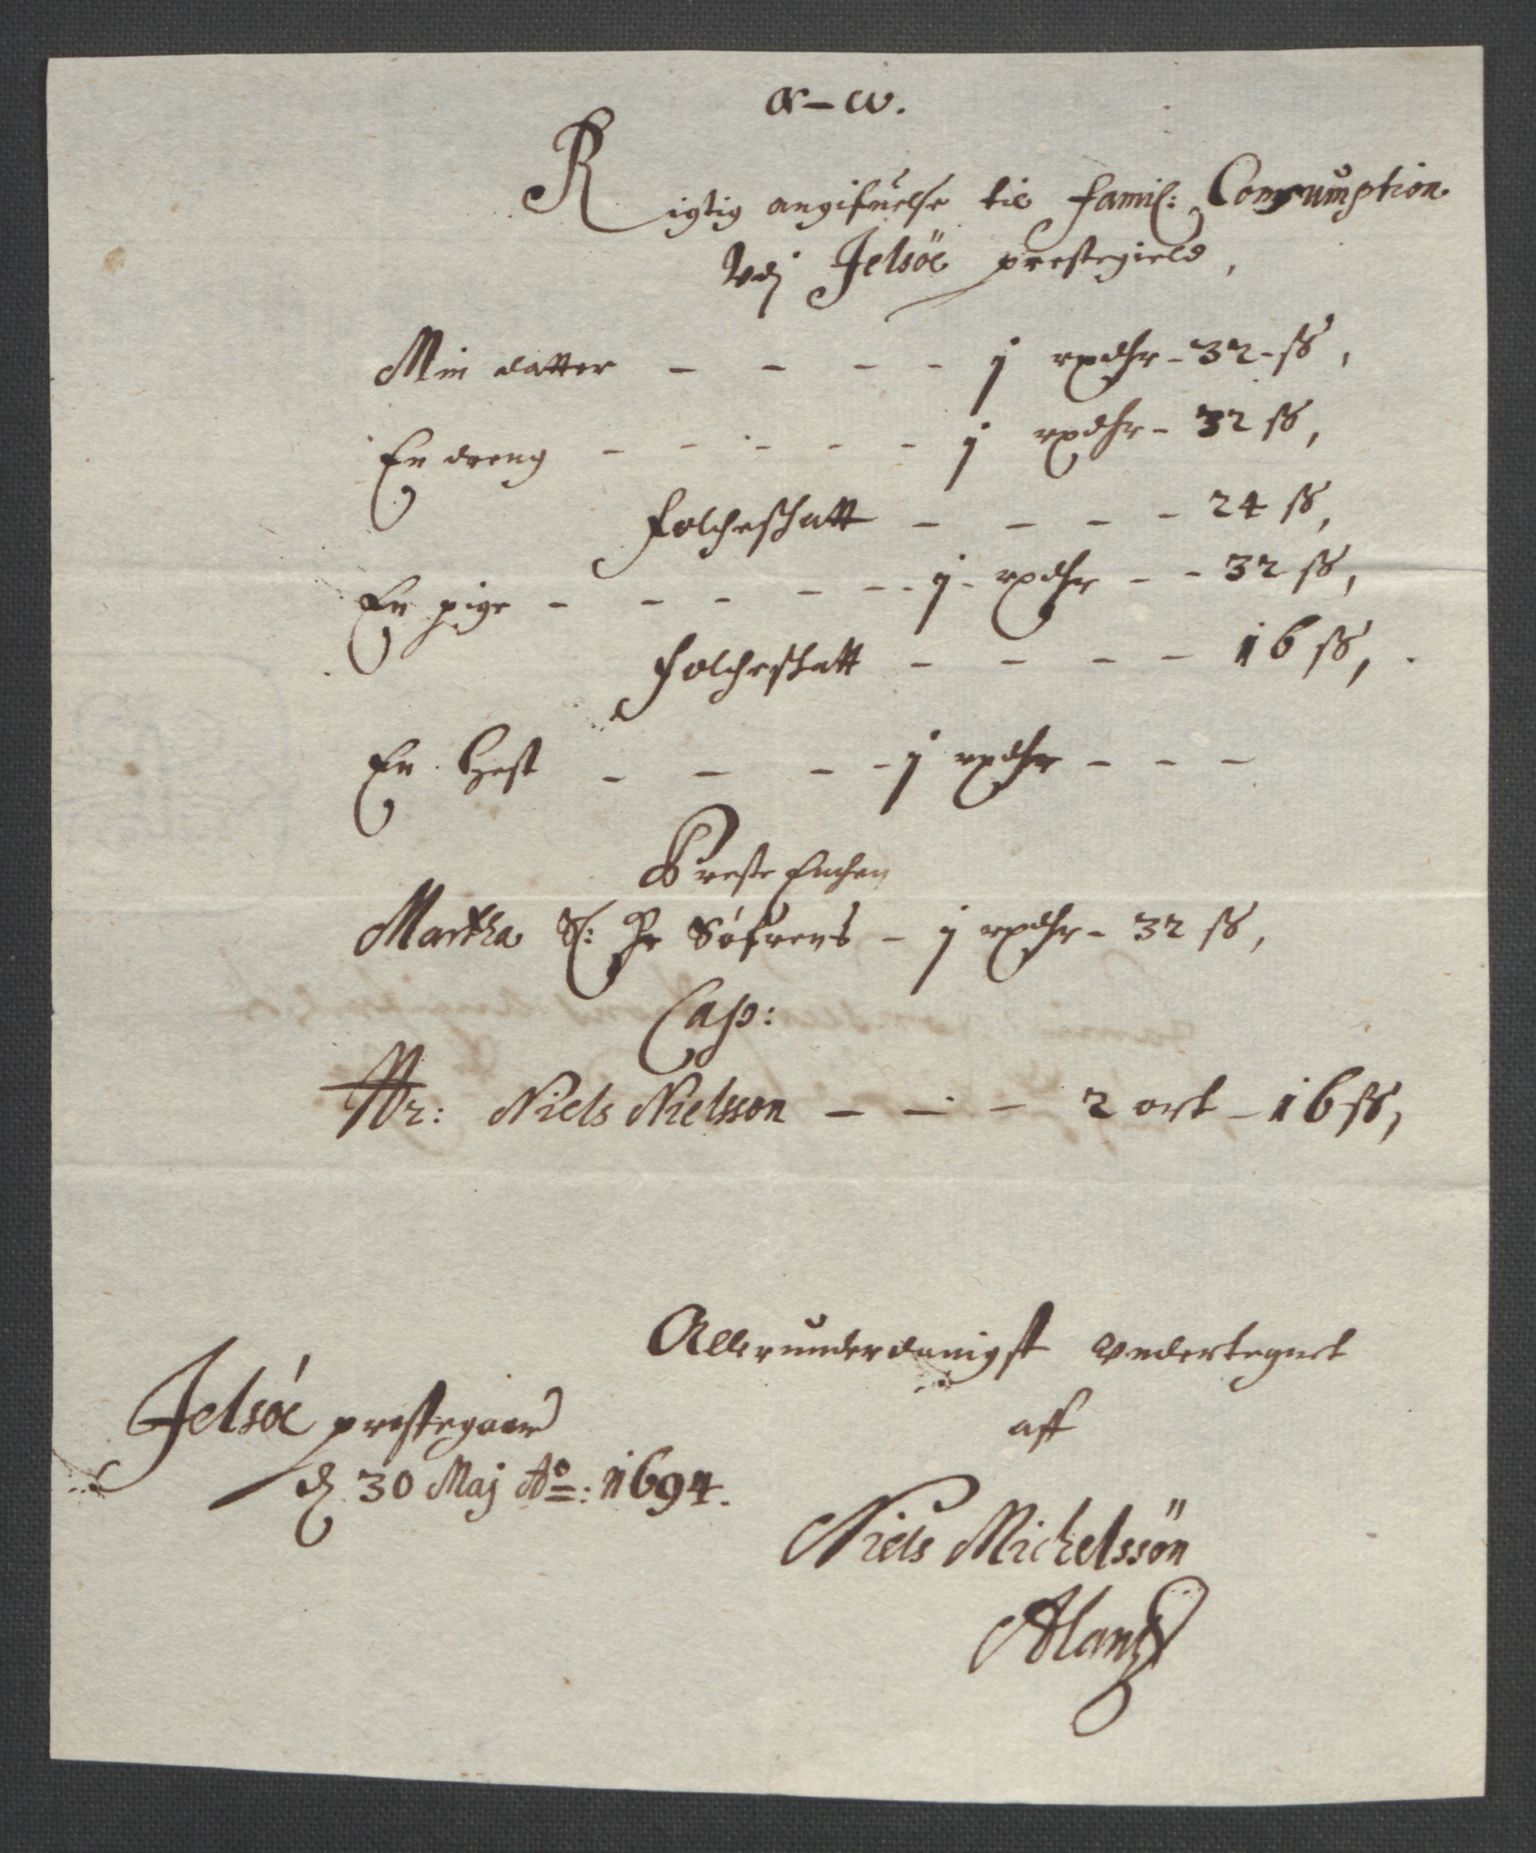 α – ω.
Rigtig angifuelse til famil: Consumption
Vdj Jelsöe prestegield,
Min datter – – – – j rxdhr – 32 – ß,
En dreng – – – – – j rxdhr – 32 ß,
Folcheschatt – – – – 24 ß,
En pige – – – – – j – rxdhr – – 32 ß,
Folcheschatt – – – – 16 ß,
En Hest – – – – j rxdhr – – –
Preste Enchen
Martha S: Hr Söfrens – j rxdhr – 32 ß,
Cap:
Hr: Niels Nielsson – – – 2 ort – 16 ß,
Allerunderdanigst vndertegnet
aff
Jelsöe prestegaard
d 30 Maj Ao: 1694.
Niels Michelssön